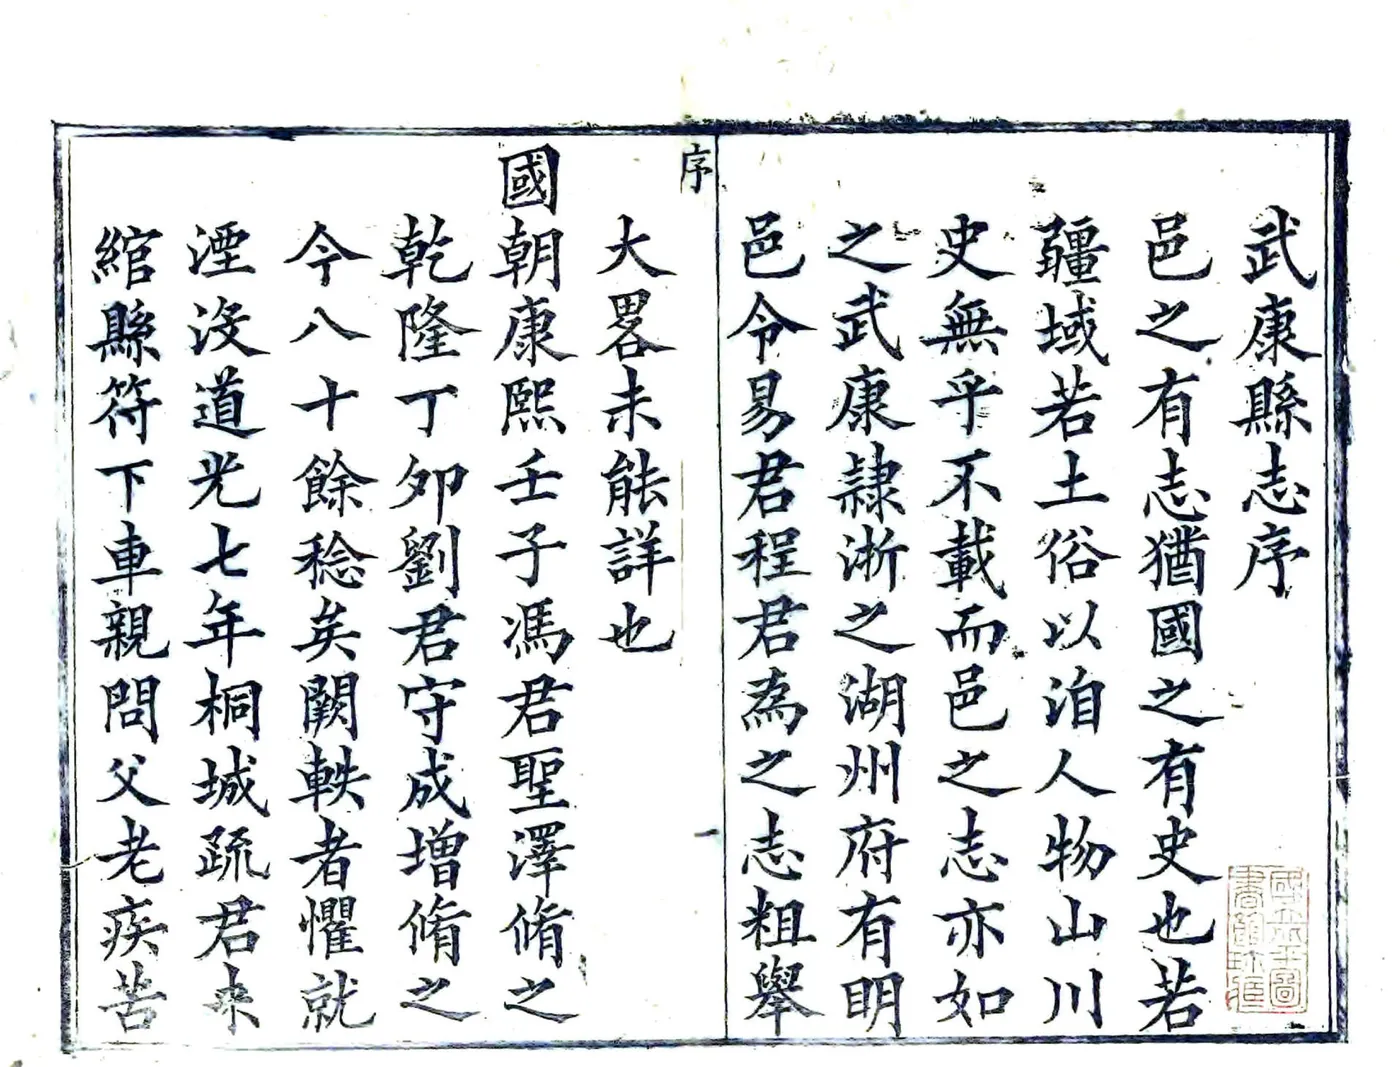 武康縣志序
邑之有志猶國之有史也若
疆域若土俗以洎人物山川
史無乎不載而邑之志亦如
之武康隷浙之湖州府有明
邑令易君程君為之志粗舉
序
一
大畧未能詳也
國朝康熙壬子馮君聖澤脩之
乾隆丁夘劉君守成增脩之
今八十餘稔矣闕軼者懼就
湮没道光七年桐城疏君来
綰縣符下車親問父老疾苦